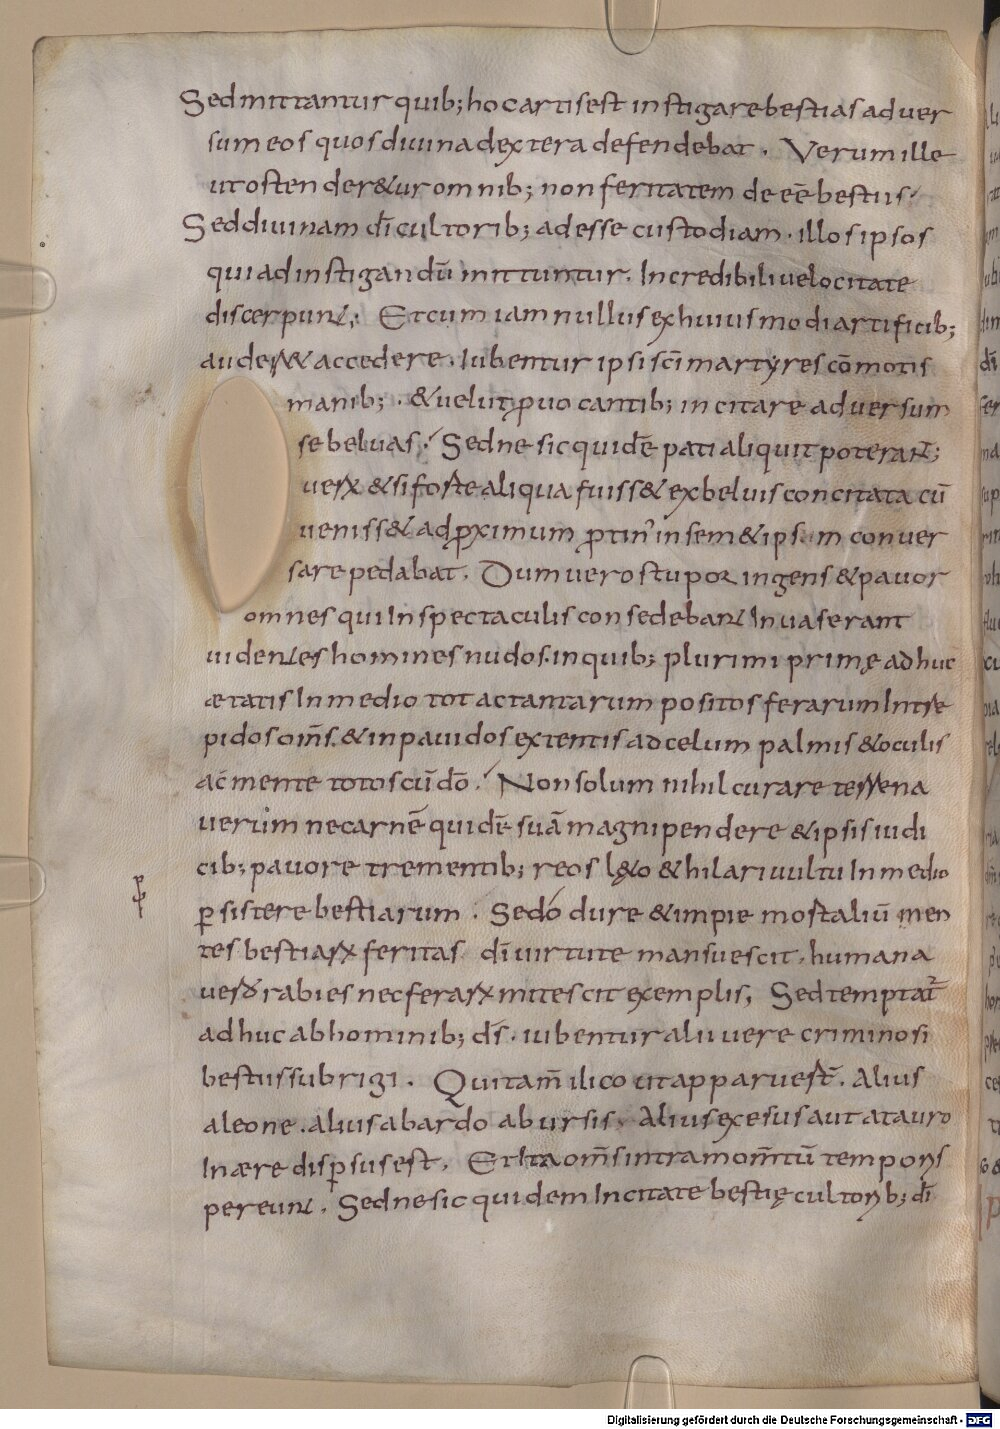 Sed mittantur quib; hoc artis est instigare bestias adver
sum eos quos divina dextera defendebat. Verum ille
ut ostender&ur omnib; non feritatem deeē bestiis.
Sed divinam dī cultorib; adesse custodiam. illos ipsos
qui ad instigandū mittuntur. Incredibili velocitate
discerpunt; Et cum iam nullus ex huiusmodi artificib;
auderet accedere. Iubentur ipsi scī martyres cōmotis
manib; & velut provocantib; incitare adversum
se beluas. Sed ne sic quidē pati aliquit poterant;
verū & si forte aliqua fuiss& ex beluis concitata cū
veniss& ad proximum protin' in sem&ips m conver
sare pedabat. Dum vero stupor ingens & pavor
omnes qui In spectaculis consedebant Invaserant
videntes homines nudos. in quib; plurimi primę adhuc
ætatis In medio tot ac tantarum positos ferarum Intre
pidos om̄s. & inpavidos extentis ad celum palmis & oculis
ac mente totos cū dō. Non solum nihil curare terrena
verum nec carnē quidē suā magni pendere & ipsis iudi
cib; pavore trementib; reos lę&o & hilari vultu In medio
persistere bestiarum. Sed ó dure & impie mortaliū men
tes bestiarū feritas dī virtute mansuescit. humana
vero rabies nec ferarū mitescit exemplis; Sed temptat
adhuc ab hominib; dś. iubentur alii vere criminosi
bestiis subrigi. Qui tam̄ ilico ut apparuer̄t. Alius
a leone. alius a bardo ab ursis. Alius excesus aut a tauro
In ære dispersus est. Et Ita om̄s intra mom̄tū temporis
pereunt. Sed ne sic quidem Incitate bestię cultorib; dī